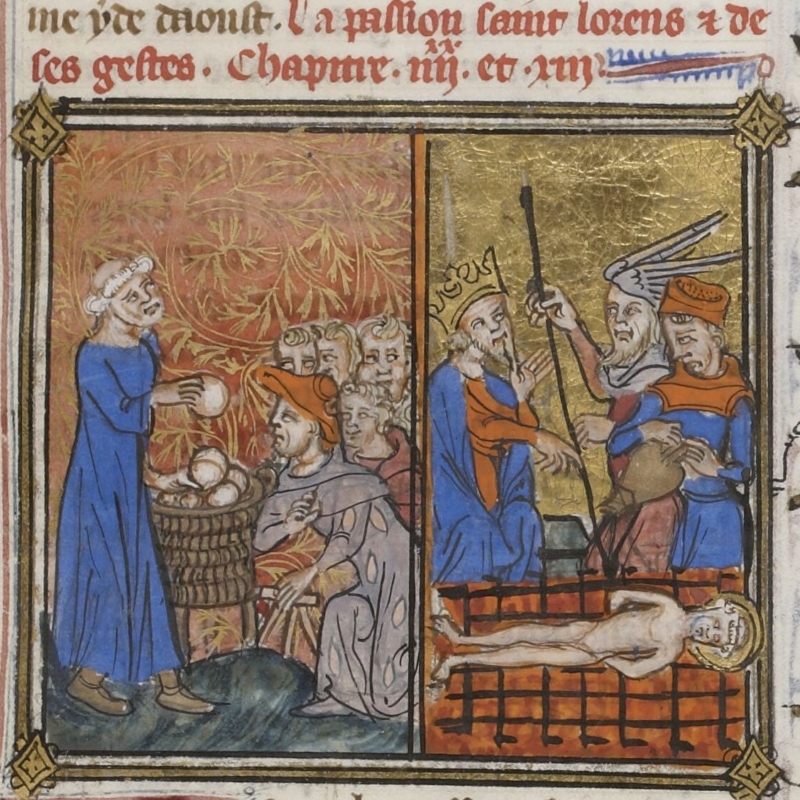 me yde daoust. La passion saint lorens ⁊ de
ses gestes. Chapitre .iiii. et .xiii.